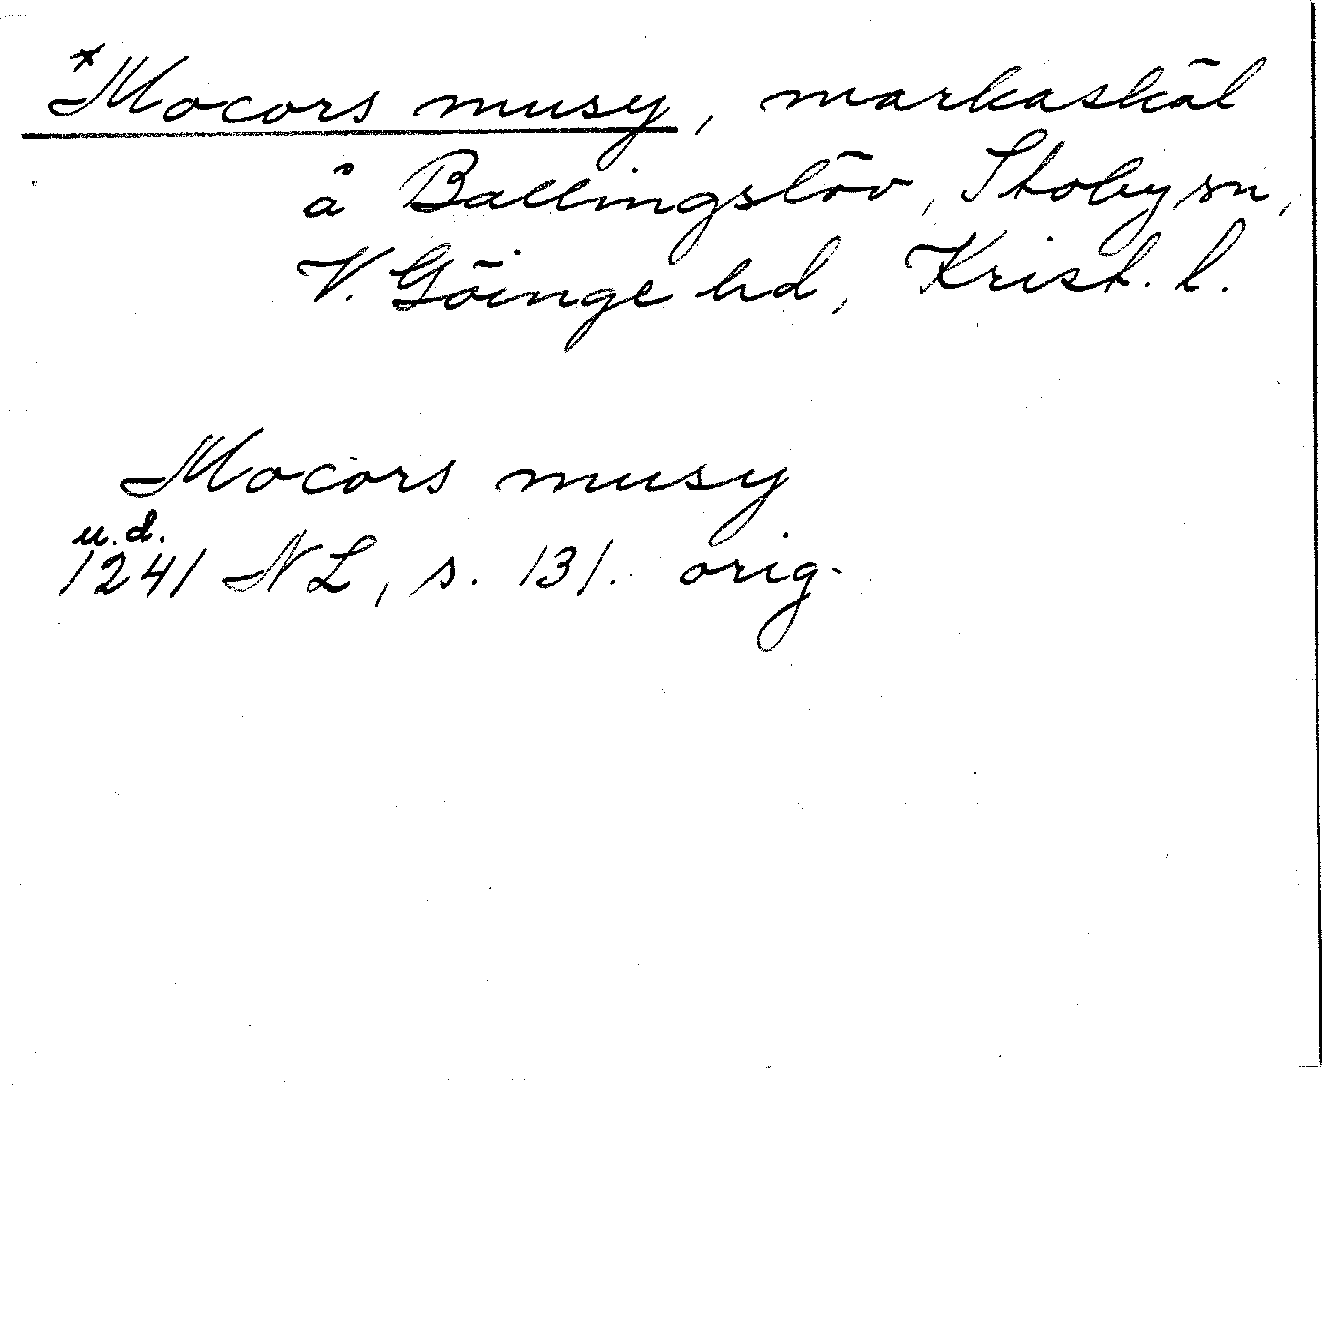 *Mocors musy, markaskäl
å Ballingslöv, Stoby sn,
V. Göinge hd, Krist. l.
Mocors musy
u.d.
1241 NL, s. 131. orig.